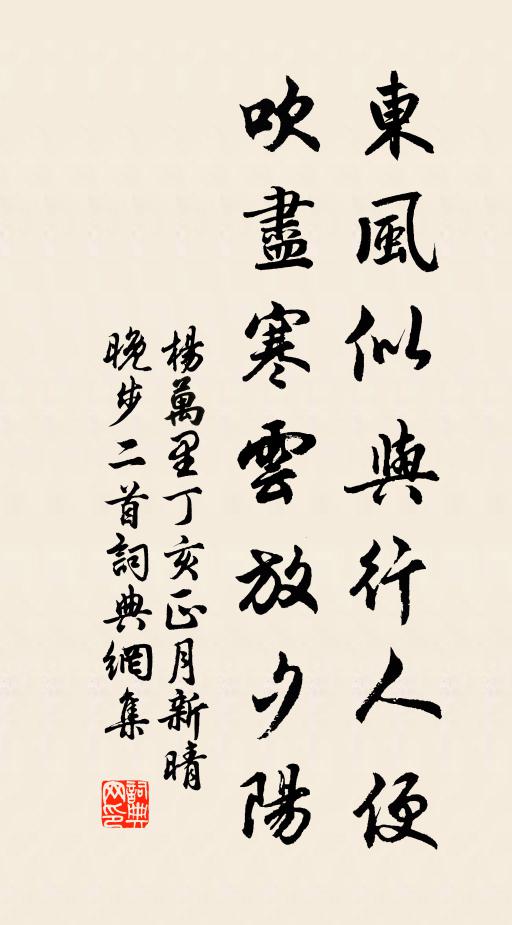 東風似與行人便
吹盡寒雲放夕陽
楊萬里丁亥正月新晴
晚步二首詞典網集
詞典
网印